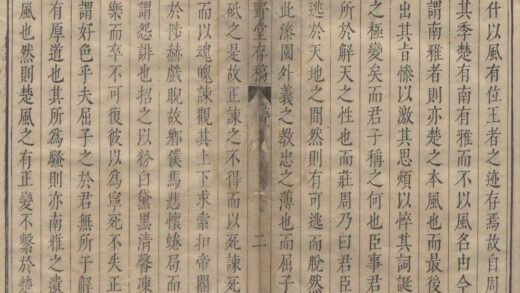 什以風有位王者之迹存焉故自周
其季楚有南有雅而不以風名由今
謂南雅者則亦楚之本風也而最後
出其旨慘以激其思煩以悴其詞誕
之極變矣而君子稱之何也臣事君
所於解天之性也而莊周乃曰君臣
逃於天地之間然則有可逃而脫然
此漆園外義之教忠之薄也而屈子
野堂存稿
二
砥之是故正諫之不得而以死諫死
而以魂魄諫觀其上下求索扣帝閽
於陟赫戲睨故鄉僕馬悲懷蜷局而
謂怨誹也招之以粉白黛黑清馨凍
樂而卒不可復彼以爲寧死不失正
謂好色乎夫屈子之於君無所于解
有原道也其所爲騷則亦南雅之遺
風也然則楚風之有正變不繫於楚